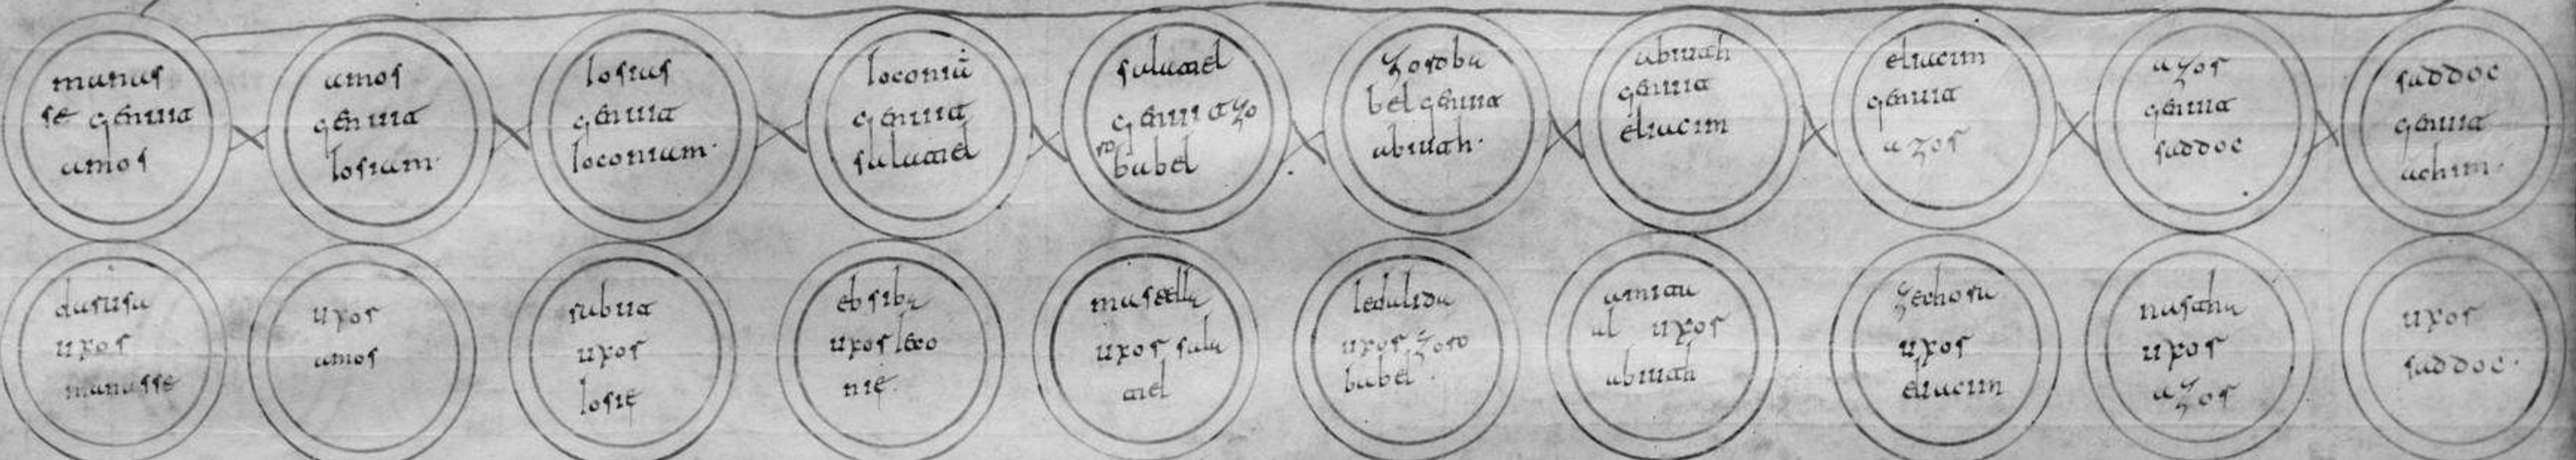 manas
se genuia
amos
amos
genuit
Iosiam
Iosias
genuit
Ieconiam
Ieconiā
genuit
salatiel
salatiel
genuit zo
ro
babel
zoroba
bel genuit
abiuth
abiuth
genuit
eliacim
eliacim
genuit
azor
azor
genuit
saddoc
saddoc
genuit
achim
uxor
manasse
uxor
amos
uxor
Iosie
uxor Ieco
nię
uxor sala
tiel
uxor zoro
babel
uxor
abiuth
uxor
eliacim
uxor
azor
uxor
saddoc